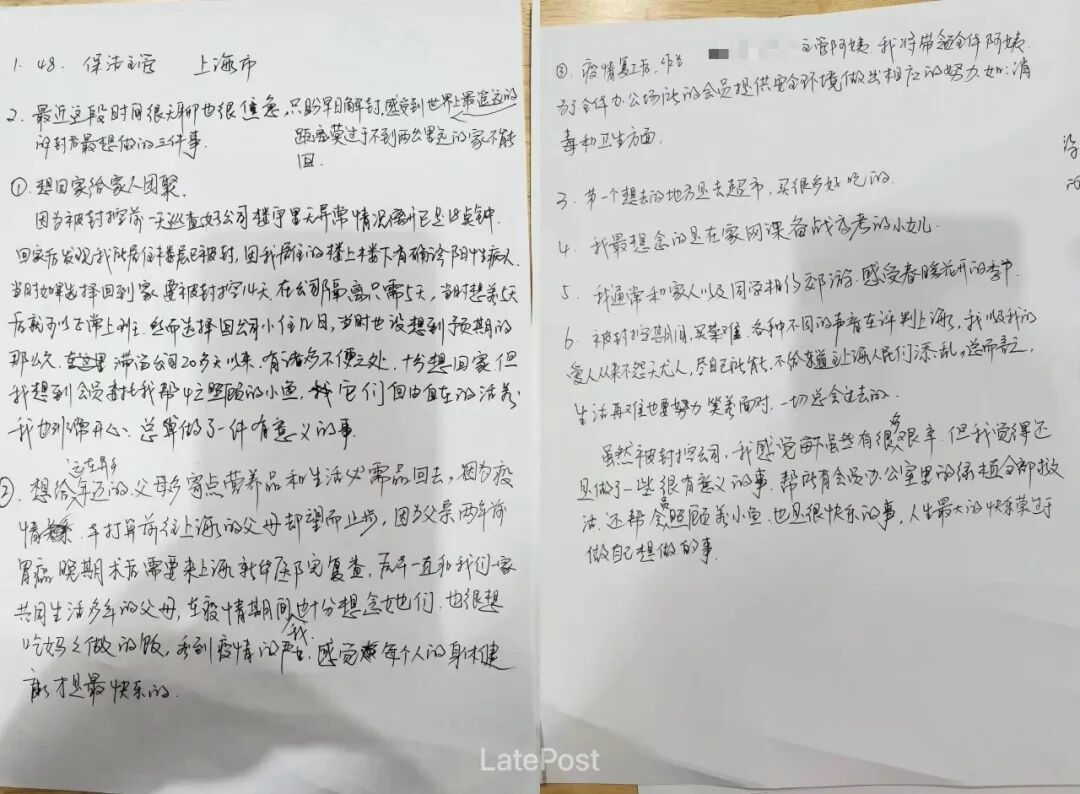 1. 48. 保洁主管 上海市
2. 最近这段时间很无聊也很焦急,只盼早日解封,感受到世界上最遥远的
距离莫过于不到两公里远的家不能
回.
的封后最想做的三件事.
① 想回家给家人团聚.
因为被封控前一天巡查好公司楼宇里无异常情况离开已是18点钟.
回家后发现我所居住楼层已被封,因我居住的楼上楼下有确诊阳性病人.
当时如果选择回到家要被封控14天,在公司隔离只需5天,当时想着5天
后就可以正常上班.然而选择回公司小住几日,当时也没想到预期的
那么久. 滞留公司20多天以来.有诸多不便之处,十分想回家.但
我想到会员委托我帮忙照顾的小鱼, 它们自由自在的活着.
我也非常开心.总算做了一件有意义的事.
② 想给远在异乡年迈的父母多寄点营养品和生活必需品回去,因为疫
情 本打算前往上海的父母却望而止步,因为父亲两年前
胃癌晚期术后需要来上海新华医院复查, 一直和我们一家
共同生活多年的父母,在疫情期间也十分想念她们.也很想
吃妈妈做的饭, 到疫情的严 .我感觉每个人的身体健
康才是最快乐的.
③. 疫情复工后,作为 主管阿姨.我将带领全体阿姨.
为全体办公场所的会员提供安全环境做出相应的努力.如:消
毒和卫生方面.
3. 第一个想去的地方是去超市,买很多好吃的.
4. 我最想念的是在家网课备战高考的小女儿.
5. 我通常和家人以及同学相约郊游.感受春暖花开的季节.
6. 被封控期间,买菜难.各种不同的声音在评判上海,我以及我的
爱人从来不怨天尤人,尽自己所能,不给 上海人民们添乱,总而言之,
生活再难也要努力笑着面对,一切总会过去的.
虽然被封控公司,我感觉 虽然有很多艰辛.但我觉得还
是做了一些很有意义的事.帮所有会员办公室里的绿植全部救
活.还帮会员照顾养小鱼.也是很快乐的事,人生最大的快乐莫过于
做自己想做的事.
LatePost